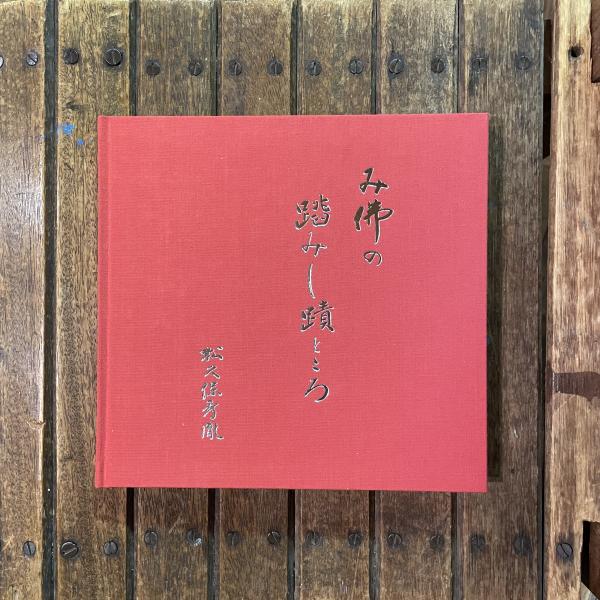 み佛の
踏みし蹟ところ
松久保秀胤